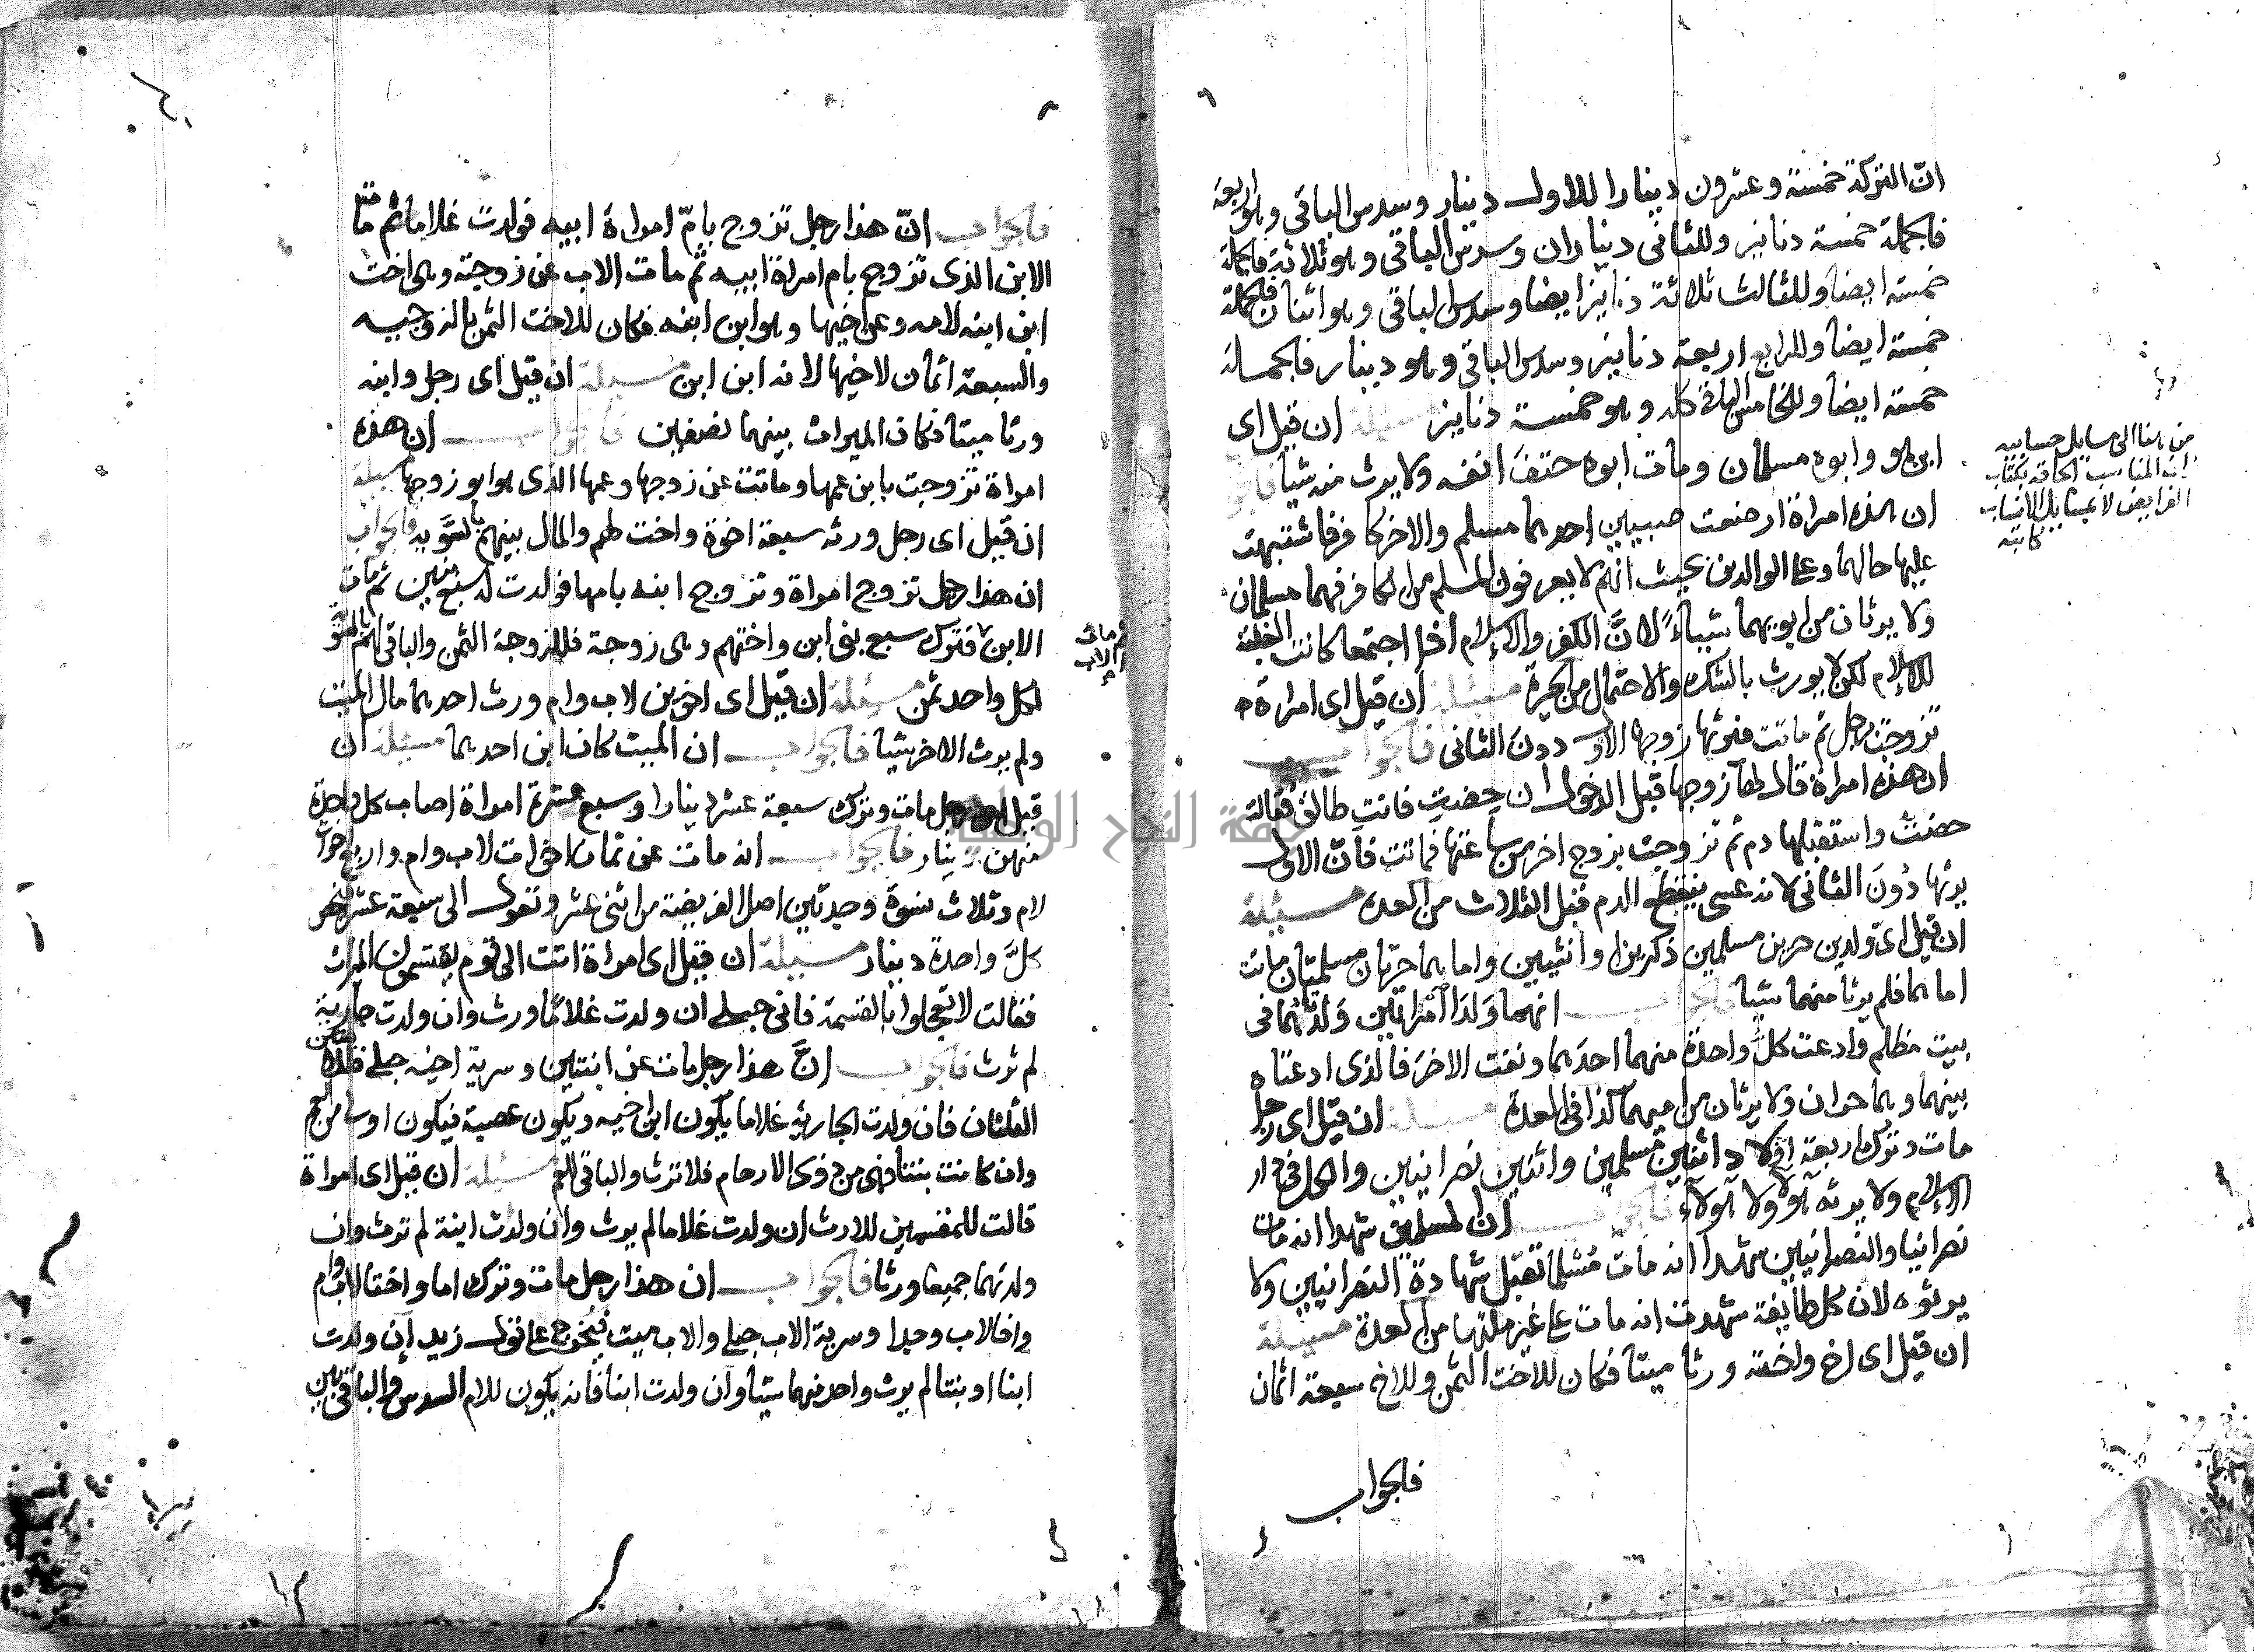 انّ التركة خمسة وعشرون دينارا للاول دينار وسدس الباقى وهو اربعة
فالجملة خمسة دنانير وللثانى ديناران وسدس الباقى وهو ثلاثة فالجملة
خمسة ايضا وللثالث ثلاثة دنانير ايضا وسدس الباقى وهو اثنان فالجملة
خمسة ايضا وللرابع اربعة دنانير وسدس الباقى وهو دينار فالجملة
خمسة ايضا وللخامس الباقى كله وهو خمسة دنانير مسئلة ان قيل اى
ابن هو وابوه مسلمان ومات ابوه حتف انفه ولا يرث منه شيا فالجواب
ان هذه امراة ارضعت صبيين احدهما مسلم والاخر كافر فاشتبهت
عليها حالهما وعلى الوالدين بحيث انهم لا يعرفون المسلم من الكافر فهما مسلمان
ولا يرثان من ابويهما شيأً لانَّ الكفر والاسلام اذا اجتمعا كانت الغلبة
للاسلام لكن لا يورث بالشك والاحتمال من الحيرة مسئلة ان قيل اى امراة
تزوجت برجل ثم ماتت فيرثها زوجها الاول دون الثانى فالجواب
ان هذه امراة قال لها زوجها قبل الدخول ان حضتِ فانتِ طالق فقالت
حضتُ واستقبلها دم ثم تزوجت بزوج اخر من ساعتها فماتت فانّ الاول
يرثها دُونَ الثانى لانه عسى ينقطع الدم قبل الثلاث من العدة مسئلة
ان قيل اىّ ولدين حرين مسلمين ذكرين او انثيين واماهما حرتان مسلمتان ماتت
اماهما فلم يرثا منهما شيا فالجواب انهما وَلَدَا امراتين وَلَدَتْهُما فى
بيت مظلم وادعت كلّ واحدة منهما احدهما ونفت الاخر فالذى ادعتاه
بينهما وهما حران ولا يرثان من اميهما كذا فى العدة مسئلة ان قيل اى رجل
مات وترك اربعة اولاد اثنين مسلمين واثنين نصرانيين والكل فى دار
الاسلام ولا يرثه هولاء ولا هولاء فالجواب ان المسلمين شهدا انه مات
نصرانيا والنصرانيين شهدا انه مات مُسْلما تقبل شهادة النصرانيين ولا
يرثوه لان كل طايفة شهدت انه مات على غير ملتها من العدة مسئلة
ان قيل اى اخ واخته ورثا ميتا فكان للاخت الثمن وللاخ سبعة اثمان
فالجواب
من هنا الى مسايل حسابيه
المناسب الحاقه بكتاب
الفرايض لا بمسايل الانساب
كاتبه
فالجواب انّ هذا رجل تزوج بامّ امراة ابيه فولدت غلاما ثم مات
الابن الذى تزوج بام امراة ابيه ثم مات الاب عن زوجته وهى اخت
ابن ابنه لامه وعن اخيها وهو ابن ابنه فكان للاخت الثمن بالزوجيه
والسبعة اثمان لاخيها لانه ابن ابن مسئلة ان قيل اى رجل وابنه
ورثا ميتا فكان الميراث بينهما نصفين فالجواب ان هذه
امراة تزوجت بابن عمها وماتت عن زوجها وعمها الذى هو ابو زوجها مسئلة
ان قيل اى رجل ورثه سبعة اخوة واخت لهم والمال بينهم بالسَّويه فالجواب
ان هذا رجل تزوج امراة وتزوج ابنه بامها فولدت له سبع بنين ثم مات
الابن فترك سبع بنى ابن واختهم وهى زوجة فللزوجة الثمن والباقى لهم بالسوية
ثم مات الاب
لكل واحد ثمن مسئلة ان قيل اى اخوين لاب وام ورث احدهما مال الميت
ولم يرث الاخر شيا فالجواب ان الميت كان ابن احدهما مسئلة ان
قيل اى رجل مات وترك سبعة عشر دينارا وسبع عشرة امراة اصاب كل واحدة
منهن دينار فالجواب انه مات عن ثمان اخوات لاب وام واربع اخوات
لام وثلاث نسوة وجدتين اصل الفريضة من اثنى عشر وتعول الى سبعة عشر فيخص
كلَّ واحدة دينار مسئلة ان قيل اى امراة اتت الى قوم يقتسمون الميراث
فقالت لا تعجلوا بالقسمة فانى حبلى ان ولدت غلامًا ورث وان ولدت جارية
لم ترث فالجواب انَّ هذا رجل مات عن ابنتين وسرية اخيه حبلى فللابنتين
الثلثان فان ولدت الجارية غلاما يكون ابن اخيه ويكون عصبة فيكون اولى من العم
وان كانت بنتا فهى من ذوى الارحام فلا ترث والباقى للعم مسئلة ان قيل اى امراة
قالت للمقسمين للارث ان ولدت غلاما لم يرث وان ولدت ابنة لم ترث وان
ولدتهما جميعا ورثا فالجواب ان هذا رجل مات وترك اما واختا لاب وام
واخا لاب وجدا وسرية الاب حبلى والاب ميت فيخرج على قول زيد ان ولدت
ابنا او بنتا لم يرث واحد منهما شيا وان ولدت ابنا فانه يكون للام السدس والباقى بين